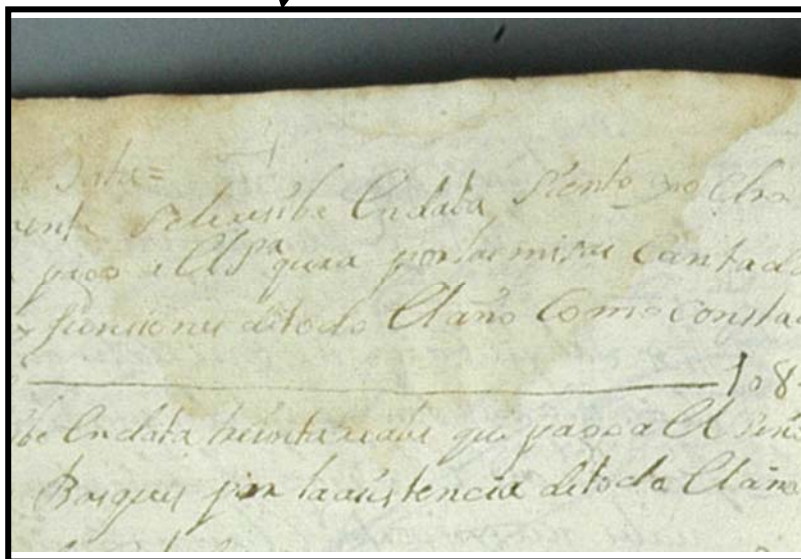 Data=
se le resibe En data siento ocho
pago a El Sr qura por las misas Cantada
funciones de todo El año Como consta
108
be En data treinta reales que pago a El Seño
Basques por la asistencia de todo El año